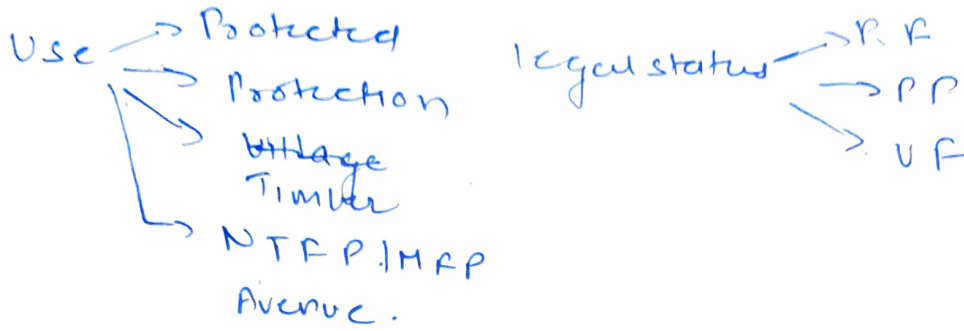 Use → Protected
→ Protection
→ Village
Timber
→ NTFP/MFP
Avenue.
legal status → R.F
→ PP
→ VF